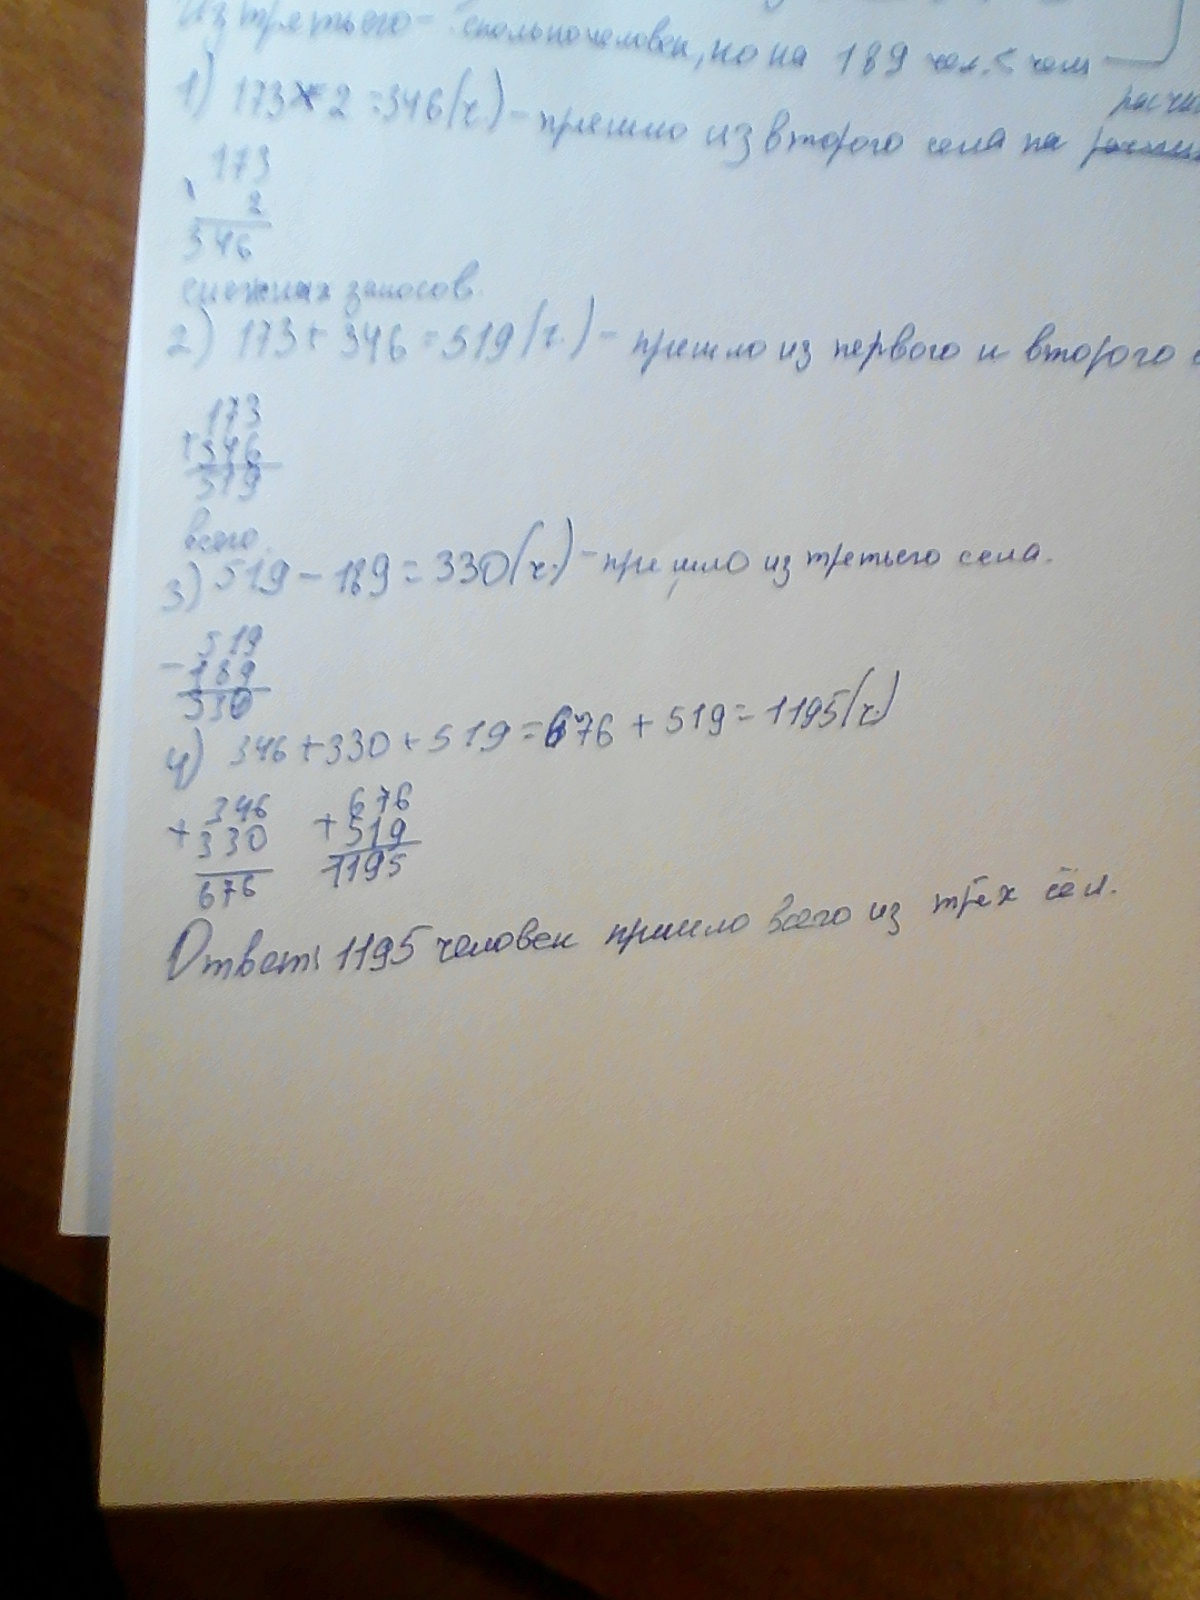 Из третьего - сколько человек, но на 189 чел. < чем
1) 173 × 2 = 346 (ч.) - пришло из второго села на расчи
173
2
346
снежных заносов.
2) 173 + 346 = 519 (ч.) - пришло из первого и второго с
173
+346
519
всего.
3) 519 - 189 = 330 (ч.) - пришло из третьего села.
-519
189
330
4) 346 + 330 + 519 = 676 + 519 = 1195 (ч.)
+346 +676
330 519
676 1195
Ответ: 1195 человек пришло всего из трёх сёл.